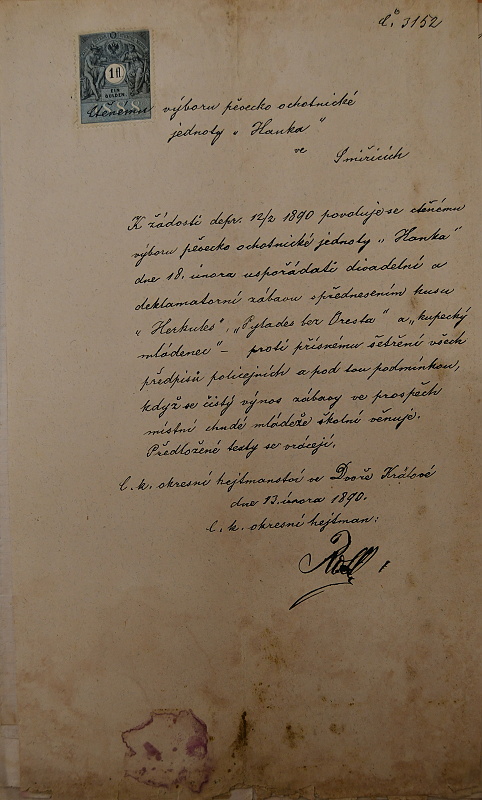 č. 3152
1 fl
EIN
GULDEN
88
ctěnému výboru pěvecko ochotnické
jednoty „Hanka"
ve
Smiřicích
K žádosti depr. 12/2 1890 povoluje se ctěnému
výboru pěvecko ochotnické jednoty „Hanka"
dne 18. února uspořádati divadelní a
deklamatorní zábavu s přednesením kusu
„Herkules", „Pylades bez Oresta" a „kupecký
mládenec" – proti přísnému šetření všech
předpisů policejních a pod tou podmínkou,
když se čistý výnos zábavy ve prospěch
místní chudé mládeže školní věnuje.
Předložené texty se vrácejí.
C. k. okresní hejtmanství ve Dvoře Králové
dne 13. února 1890.
C. k. okresní hejtman: